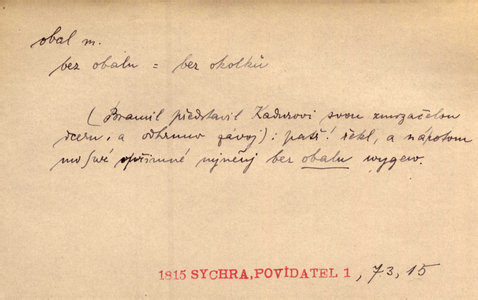 obal m.
bez obalu = bez okolků
(Bramil představil Kadurovi svou zmrzačelou
dceru, a odhrnuv závoj): patř! řekl, a nápotom
mu své upřímné mýnění bez obalu wygew.
1815 SYCHRA, POVÍDATEL 1, 73, 15